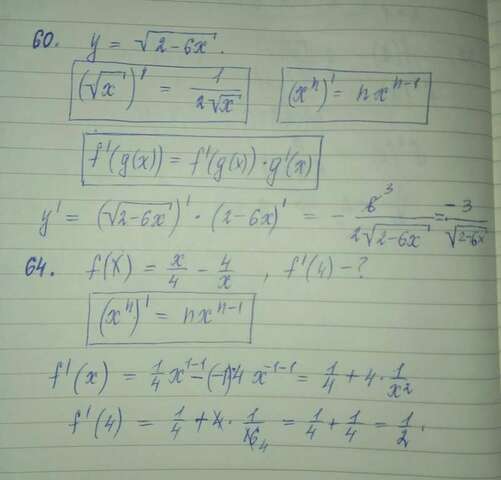 60. y = √(2-6x).
(√x)' = 1/(2√x)   (xⁿ)' = nxⁿ⁻¹
f'(g(x)) = f'(g(x))·g'(x)
y' = (√(2-6x))' · (2-6x)' = - 6 3/(2√(2-6x)) = -3/√(2-6x)
64. f(x) = x/4 - 4/x , f'(4) - ?
(xⁿ)' = nxⁿ⁻¹
f'(x) = 1/4 x¹⁻¹ - (-1)·4 x⁻¹⁻¹ = 1/4 + 4 · 1/x²
f'(4) = 1/4 + 4 · 1/16 4 = 1/4 + 1/4 = 1/2.